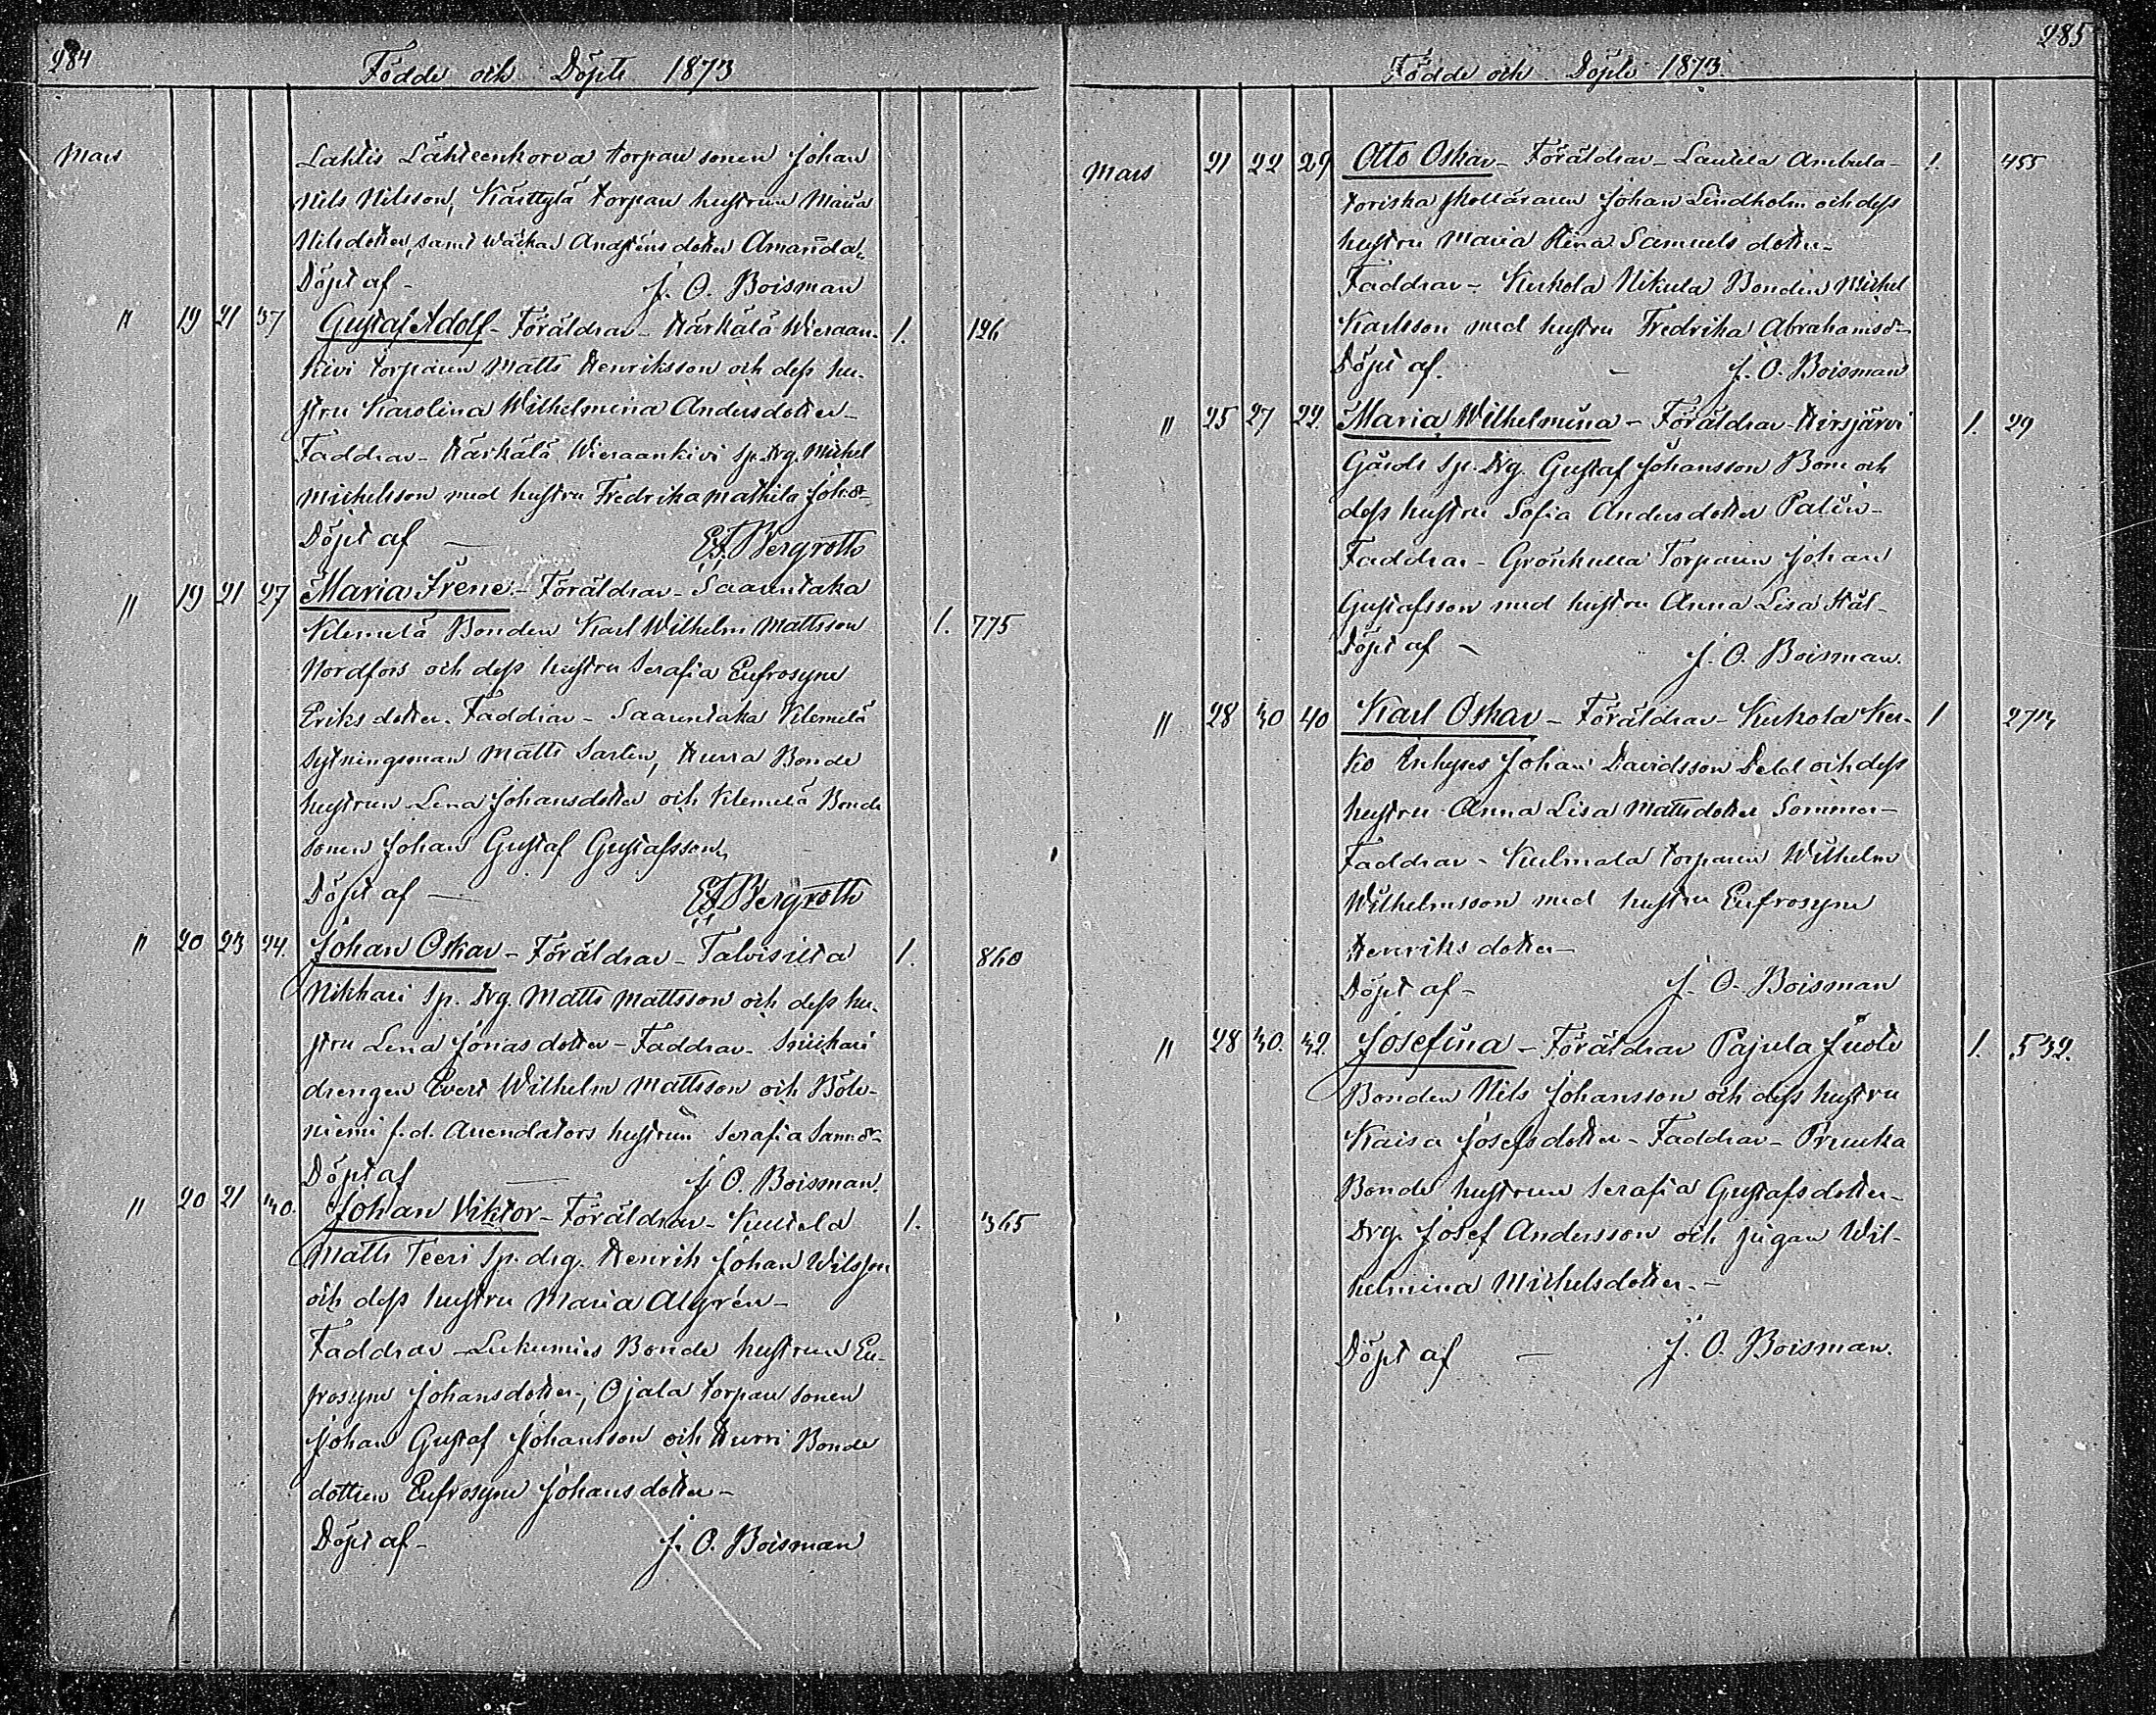 284
Födde och Döpte 1873
Mars
Lahtis Lähteenkorva torpare sonen Johan
Nils Nilsson, Kärttylä torpare hustrun Maria
Nilsdotter, samt Andrens dotter Amanda
Döpt af - J. O. Boisman
" 19 21 37 Gustaf Adolf - Föräldrar - Härkälä Wieraan- 1. 126
kivi torparen Matts Henriksson och dess hu-
stru Karolina Wilhelmina Andersdotter -
Faddrar - Härkälä Wieraankivi Sp. Drg. Michel
Michelsson med hustru Fredrika Mathila Joh:dr
Döpt af - E J Bergroth
" 19 21 27 Maria Irene - Föräldrar - Saarentaka
Klemelä Bonden Karl Wilhelm Mattsson 1. 775
Nordfors och dess hustru Serafia Eufrosyne
Eriksdotter. Faddrar - Saarentaka Klemelä
Sytningsman Matts Sarlin, Hurra Bonde
hustrun Lena Johansdotter och Klemelä Bonde
sonen Johan Gustaf Gustafsson,
Döpt af - E J Bergroth
" 20 23 24. Johan Oskar - Föräldrar - Talvisilta 1. 860
Nikkari Sp. Drg. Matts Mattsson och dess hu-
stru Lena Jonasdotter - Faddrar - Snikari
drengen Evert Wilhelm Mattsson och
niemi f.d. Arrendators hustrun Serafia Sam:dr
Döpt af - J. O. Boisman.
" 20 21 30. Johan Viktor - Föräldrar - Kultela 1. 365
Matts Teeri Sp. drg. Henrik Johan Wilsson
och dess hustru Maria Algrén -
Faddrar - Bonde hustrun Eu-
frosyne Johansdotter, Ojala torpare sonen
Johan Gustaf Johansson och Hurri Bonde
dottren Eufrosyne Johansdotter -
Döpt af - J. O. Boisman
285
Födde och Döpte 1873.
Mars 21 22 29 Otto Oskar - Föräldrar - Lautela Ambula- 1. 455
toriska skolläraren Johan Lindholm och dess
hustru Maria Stina Samuelsdotter -
Faddrar - Kerkola Nikula Bonden Michel
Karlsson med hustru Fredrika Abrahamsd:r
Döpt af. - J. O. Boisman
" 25 27 22. Maria Wilhelmina - Föräldrar - Hirsjärvi 1. 29
Gårds Sp. Drg. Gustaf Johansson Bom och
dess hustru Sofia Andersdotter Palin -
Faddrar - Grönkulla Torparen Johan
Gustafsson med hustru Anna Lisa Stål -
Döpt af - J. O. Boisman.
" 28 30 40 Karl Oskar - Föräldrar - Kerkola Ker- 1 273
ko Inhyses Johan Davidsson Deld och dess
hustru Anna Lisa Mattsdotter Sommer -
Faddrar - Kulmala torparen Wilhelm
Wilhelmsson med hustru Eufrosyne
Henriksdotter -
Döpt af - J. O. Boisman
" 28 30. 32. Josefina - Föräldrar Pajula Juoti 1. 532.
Bonden Nils Johansson och dess hustru
Kaisa Josefsdotter - Faddrar - Prunka
Bonde hustrun Serafia Gustafsdotter -
Drg. Josef Andersson och pigan Wil-
helmina Michelsdotter. -
Döpt af - J. O. Boisman.